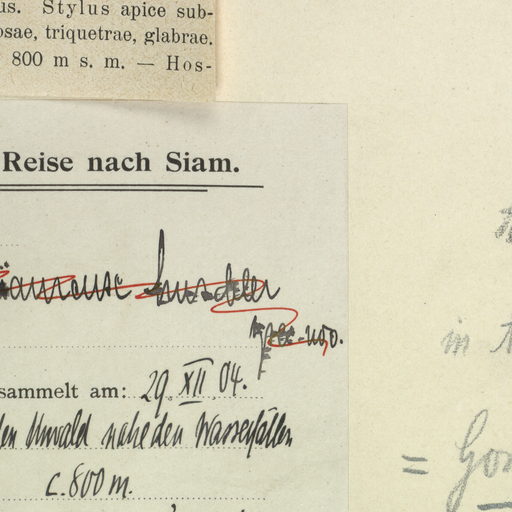 us. Stylus apice sub-
osae, triquetrae, glabrae.
800 m s. m. — Hos-
Reise nach Siam.
spec. nov.
sammelt am: 29. XII. 04.
den Urwald nahe den Wasserfällen
c. 800 m.
in
= Gom